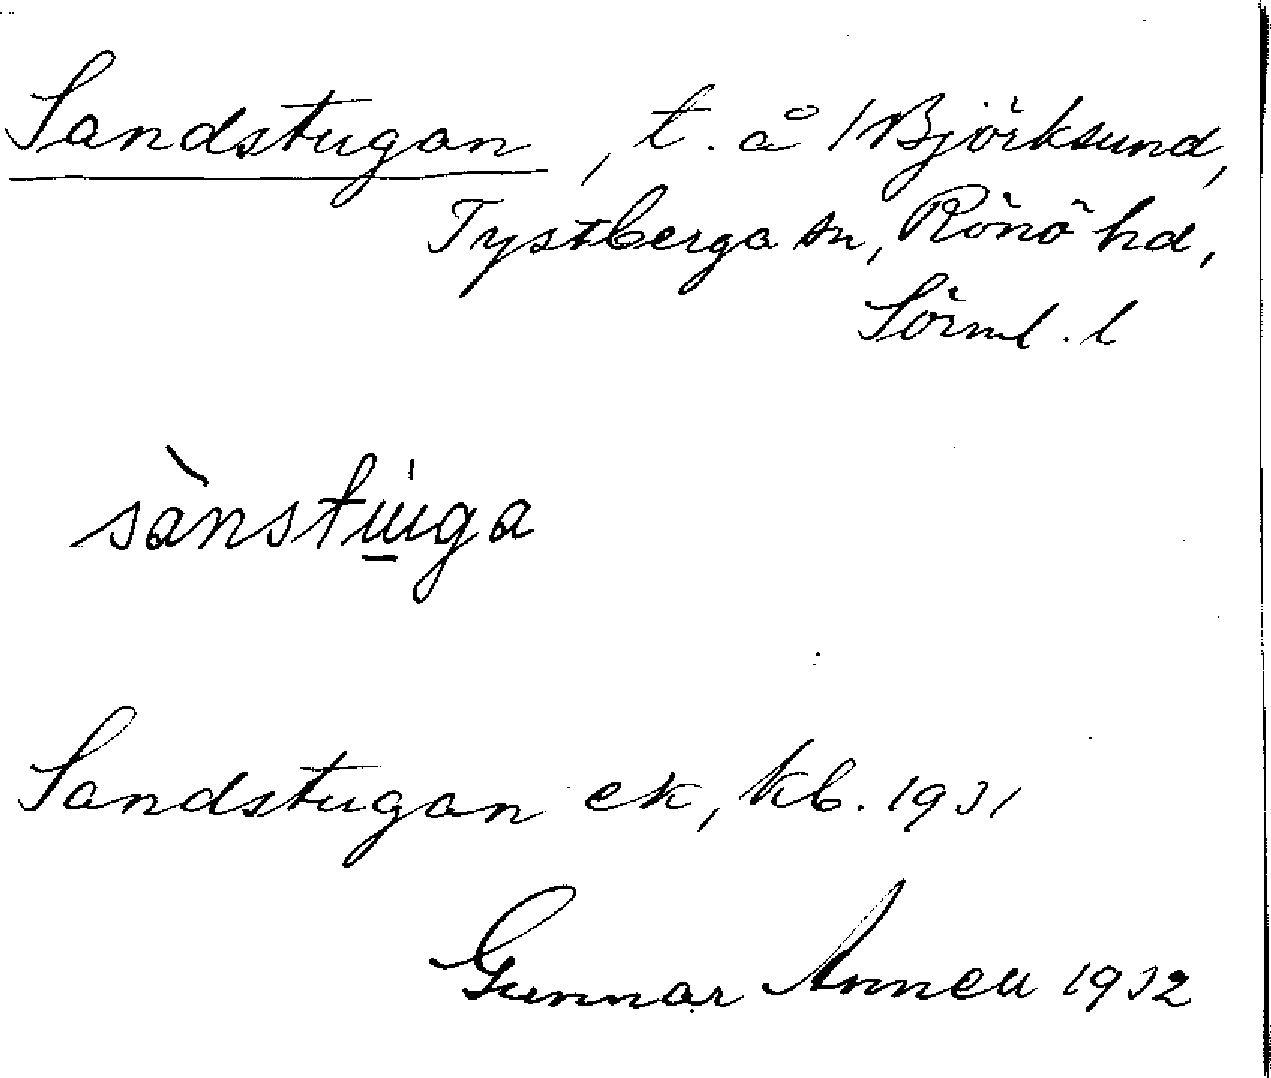 Sandstugan, t. å /Björksund,
Tystberga sn, Rönö hd,
Sörml. l
sànstu̇ga
Sandstugan ek, kb. 1931
Gunnar Annell 1932